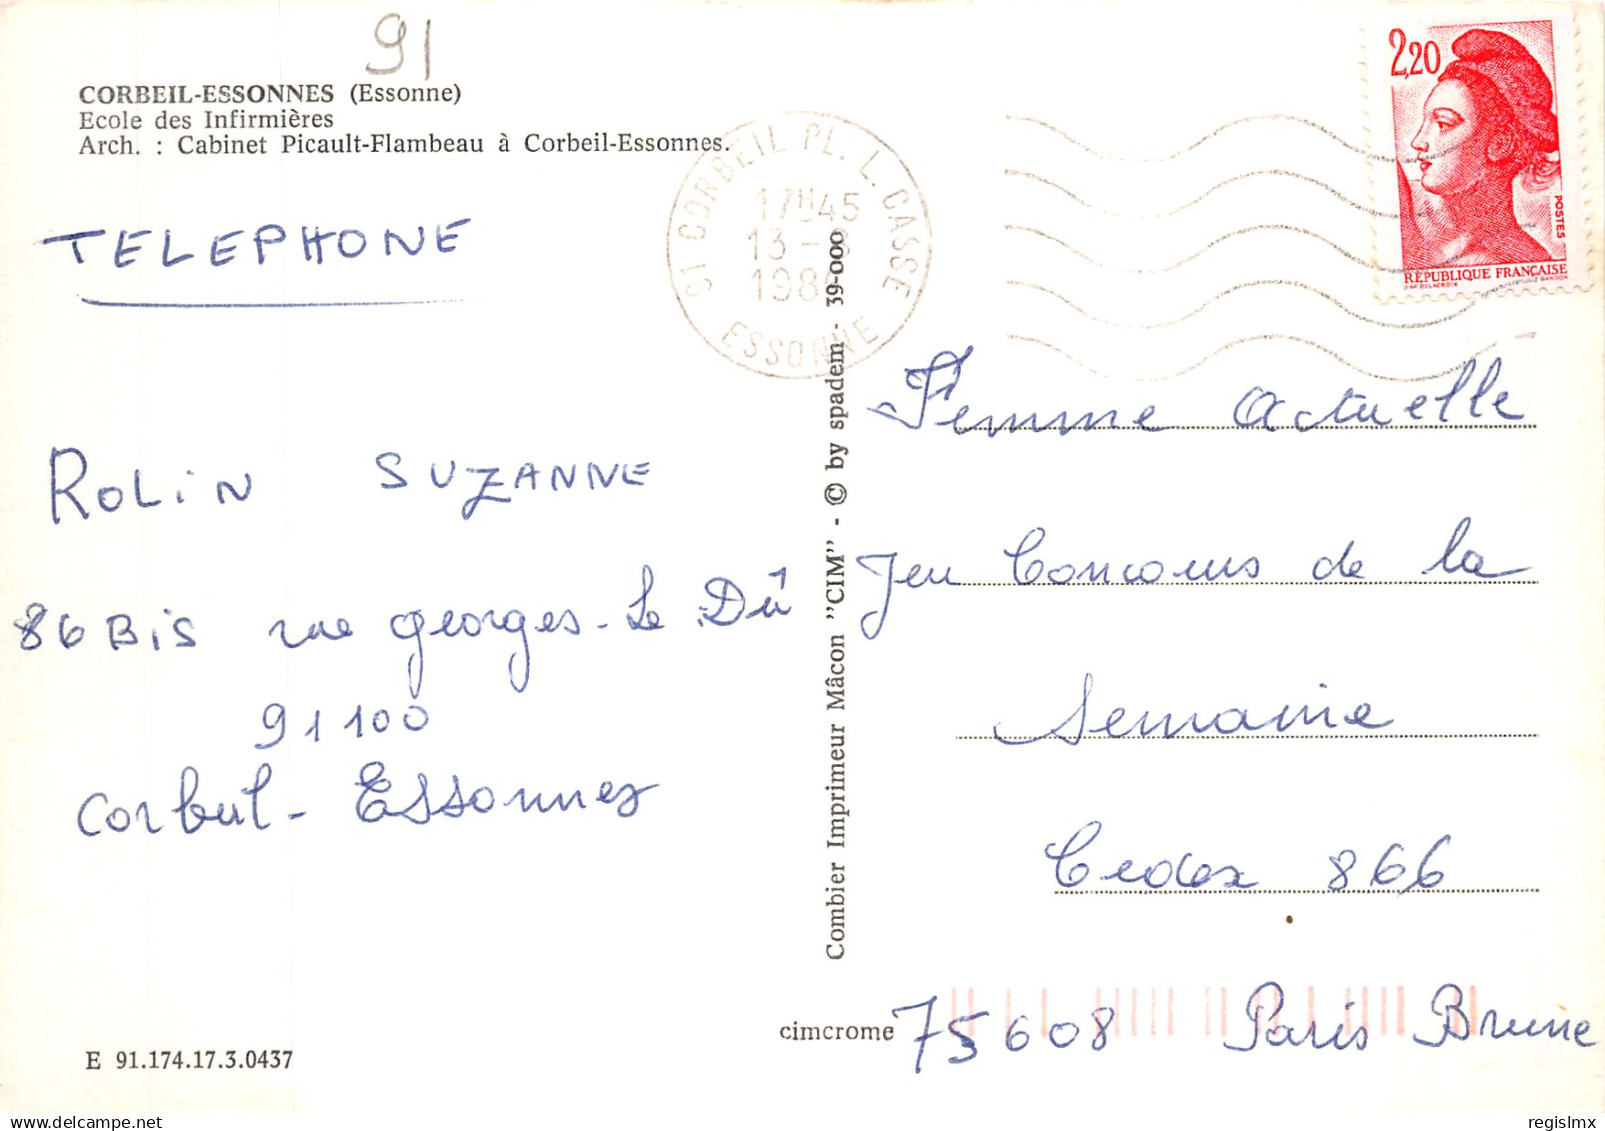 91
CORBEIL-ESSONNES (Essonne)
Ecole des Infirmières
Arch. : Cabinet Picault-Flambeau à Corbeil-Essonnes.
TELEPHONE
ROLIN SUZANNE
86 BIS rue georges-Le Dû
91100
Corbeil-Essonnes
E 91.174.17.3.0437
91 CORBEIL PL. L. CASSE
17H45
13 -
ESSONNE
Combier Imprimeur Mâcon "CIM" - © by spadem - 39-000
cimcrome
2,20
POSTES
RÉPUBLIQUE FRANÇAISE
D'AP. DELACROIX
GANDON
Femme actuelle
Jeu Concours de la
Semaine
Cedex 866
75608 Paris Brune
regislmx